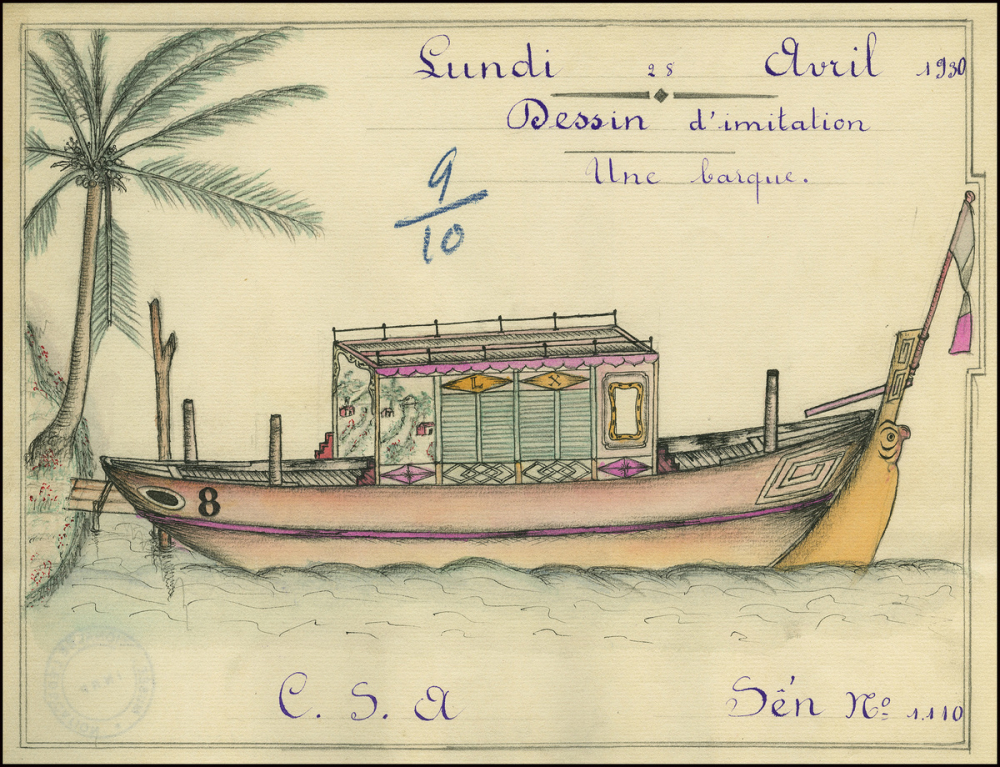 Lundi 28 Avril 1930
Dessin d'imitation
Une barque.
9/10
L X
8
C. S. A Sến Nº 1.110